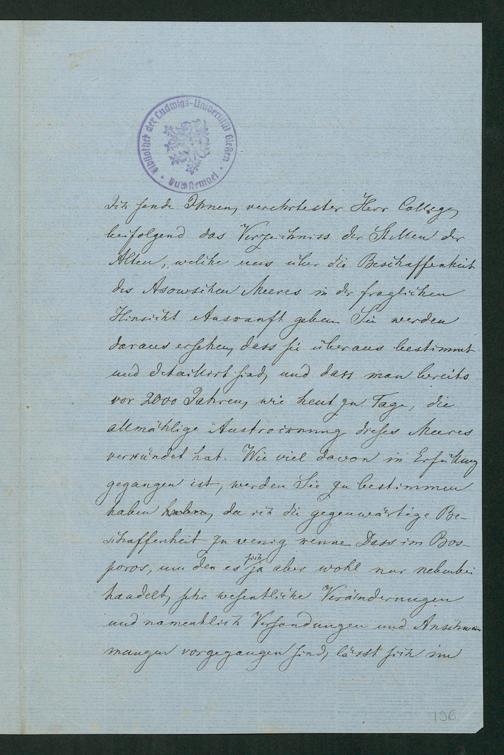 Bibliothek der Ludwigs-Universität Gießen
Ich sende Ihnen, verehrtester Herr College,
beifolgend das Verzeichniss der Stellen der
Alten, welche uns über die Beschaffenheit
des Asowschen Meeres in der fraglichen
Hinsicht Auskunft geben. Sie werden
daraus ersehen, dass sie überaus bestimmt
und detaillirt sind, und dass man bereits
vor 2000 Jahren, wie heut zu Tage, die
allmählige Austrocknung dieses Meeres
verkündet hat. Wie viel davon in Erfüllung
gegangen ist, werden Sie zu bestimmen
haben, da ich die gegenwärtige Be-
schaffenheit zu wenig kenne. Dass im Bos-
poros, um den es sich ja aber wohl nur nebenbei
handelt, sehr wesentliche Veränderungen
und namentlich Versandungen und Anschwem-
mungen vorgegangen sind, lässt sich im
196